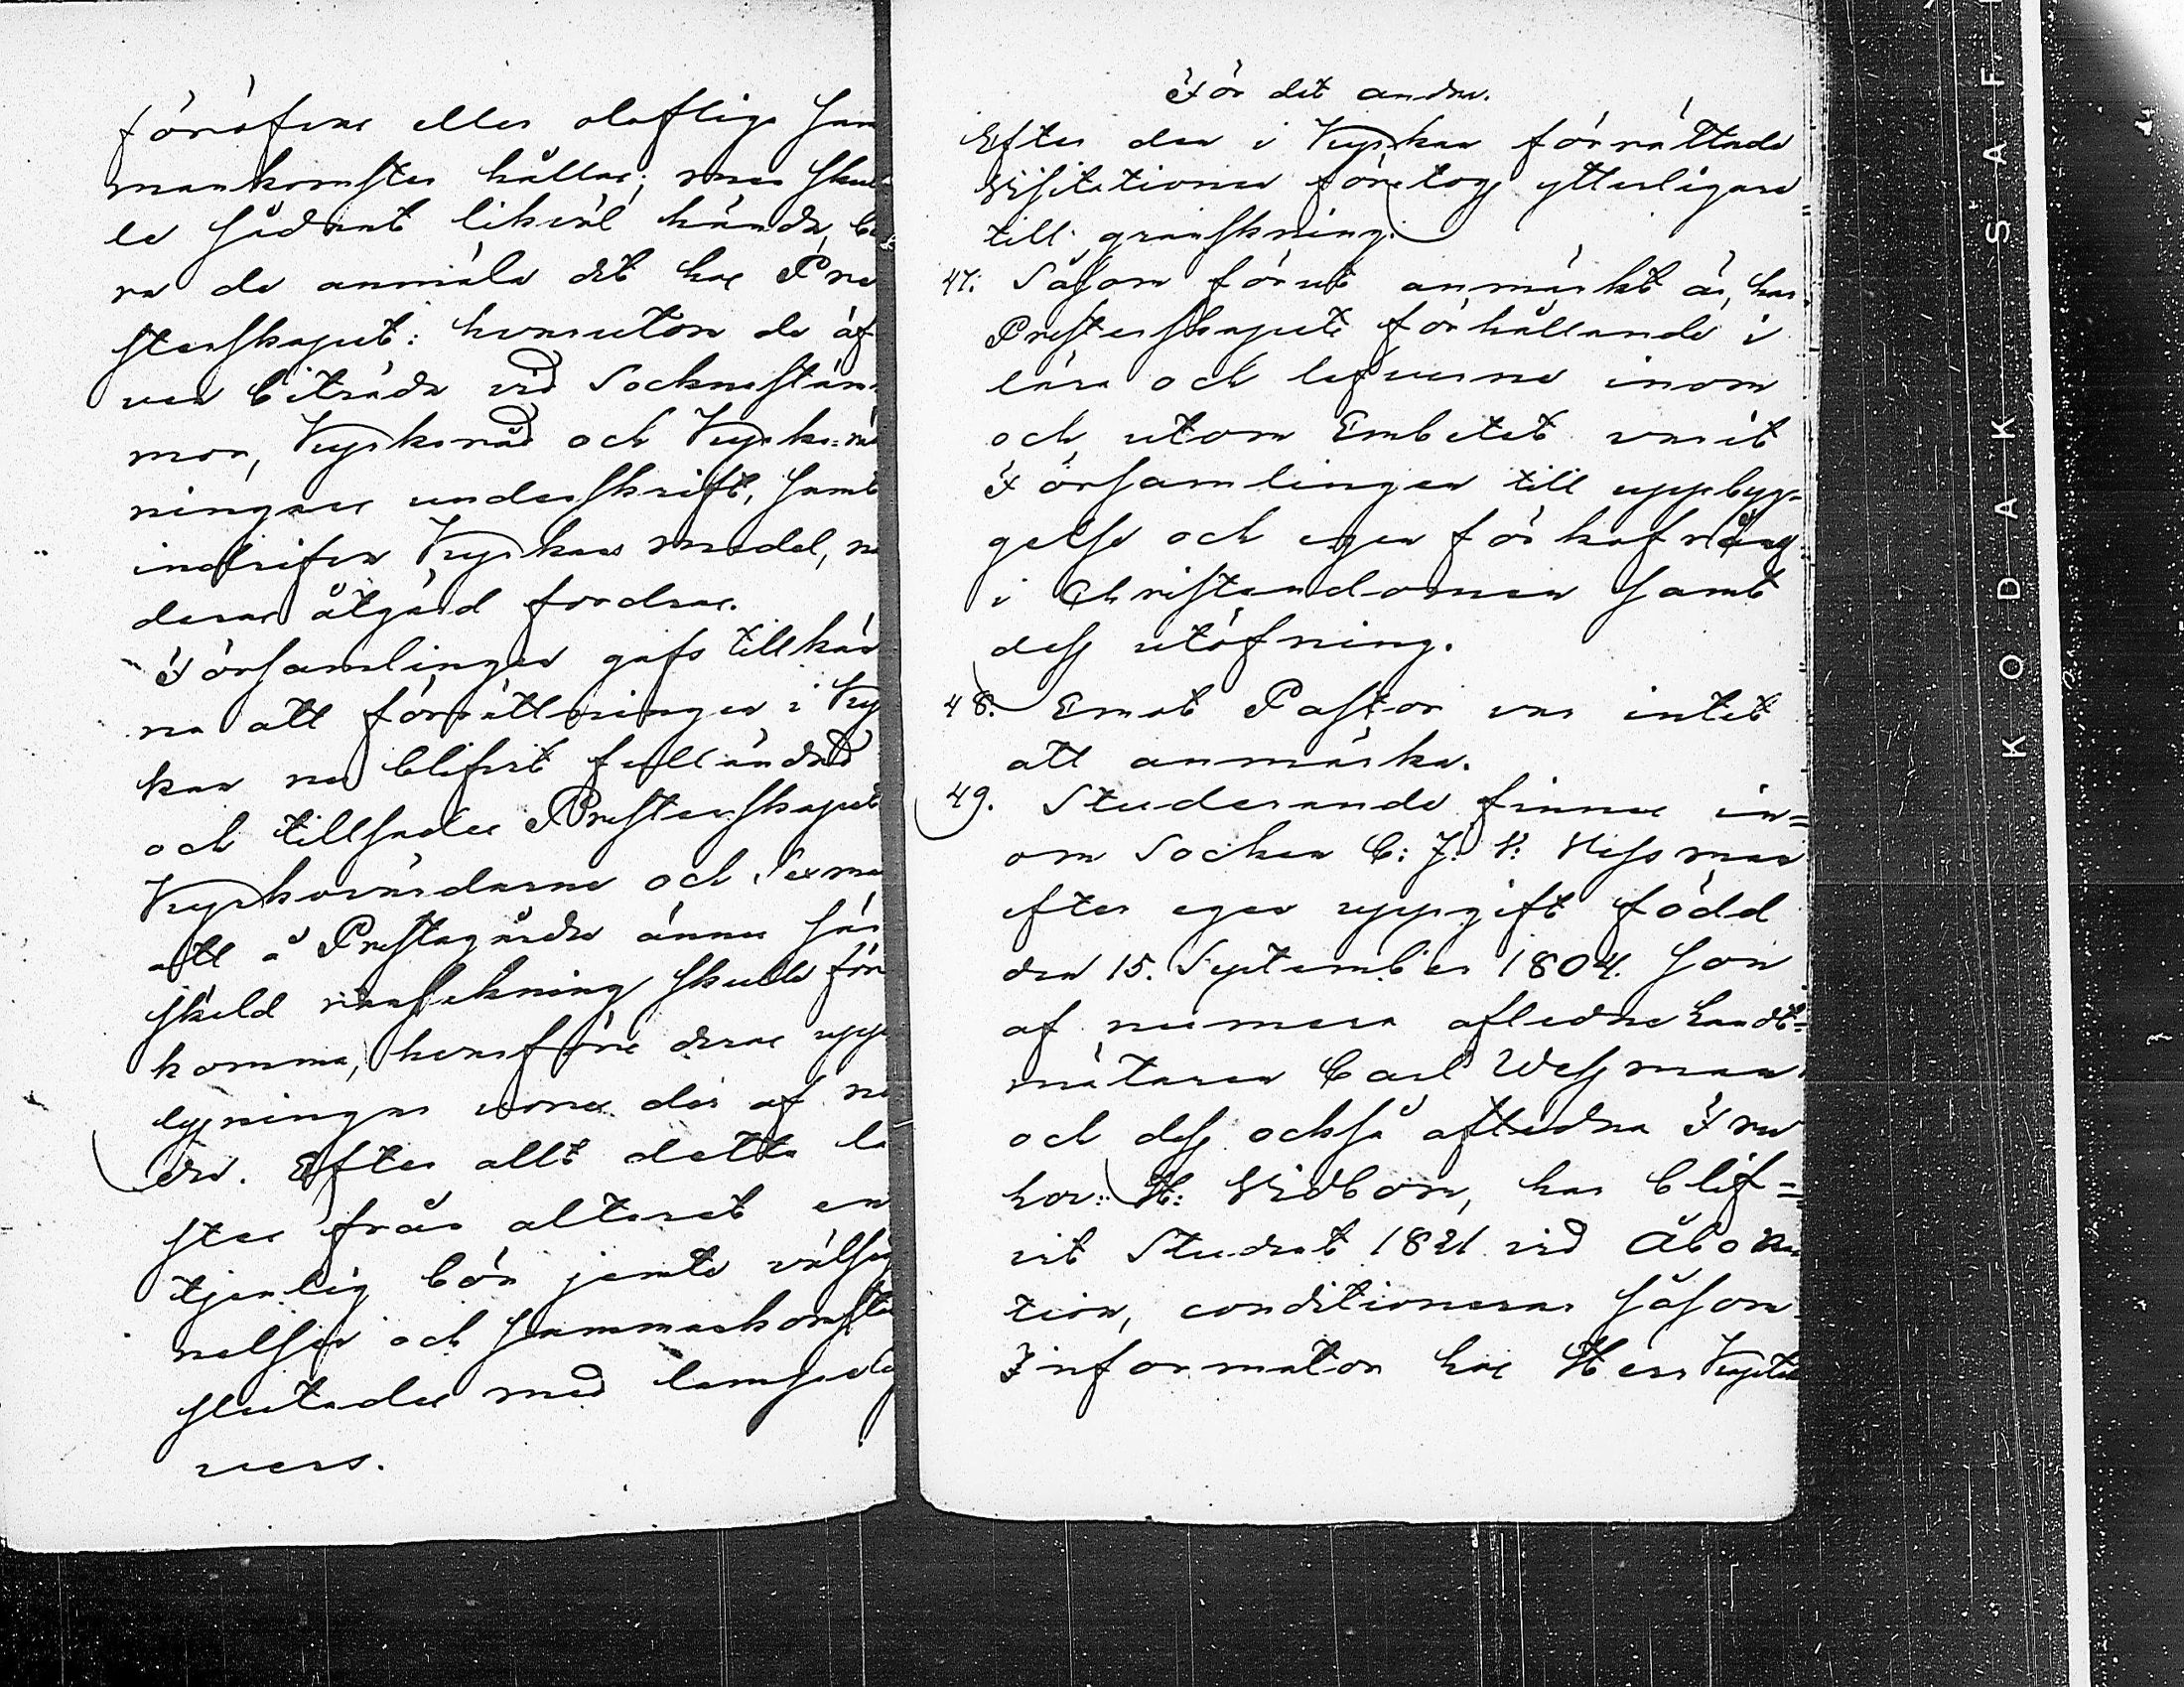 föröfvas eller oloflige sam
mankomster hållas; men skul
le sådant likväl hända, bö
ra de anmäla det hos Pre
sterskapet: hvarutom de äf
ven biträda vid Sockenstäm
mor, Kyrkoråd och Kyrko-rä
ningars underskrift, samt
indrifva Kyrkans medel,
deras åtgärd fordras.
Församlingen gafs tillkän
na att förrättningen i Kyr
kan nu blifvit fulländad
och tillsades Presterskapet
Kyrkovärdarne och Sexmän
att å Prestagården ännu sär
skild ransakning skulle före
komma, hvarföre deras upp
lysningar vore der af nö
den. Efter allt detta lä
stes från altaret en
tjenlig bön jemte välsig
nelsen och sammankomsten
slutades med lämpelig
vers.
För det andra.
Efter den i Kyrkan förrättade
Visitationen företogs ytterligare
till granskning.
47. Såsom förut anmärkt är, har
Presterskapets förhållande i
lära och lefverne inom
och utom Embetet varit
Församlingen till uppbyg-
gelse och egen förkofring
i Christendomen samt
dess utöfning.
48. Emot Pastor var intet
att anmärka.
49. Studerande finnes in=
om Socken C: J: V: Wessman
efter egen uppgift född
den 15. September 1804. son
af numera afledne Landt=
mätaren Carl Wessman
och dess också afledna Fru
hor: H: Widbom, har blif=
vit Student 1821 vid Åbo Na
tion, conditionerar såsom
Informator hos Herr Kapiten
KODAK SAF